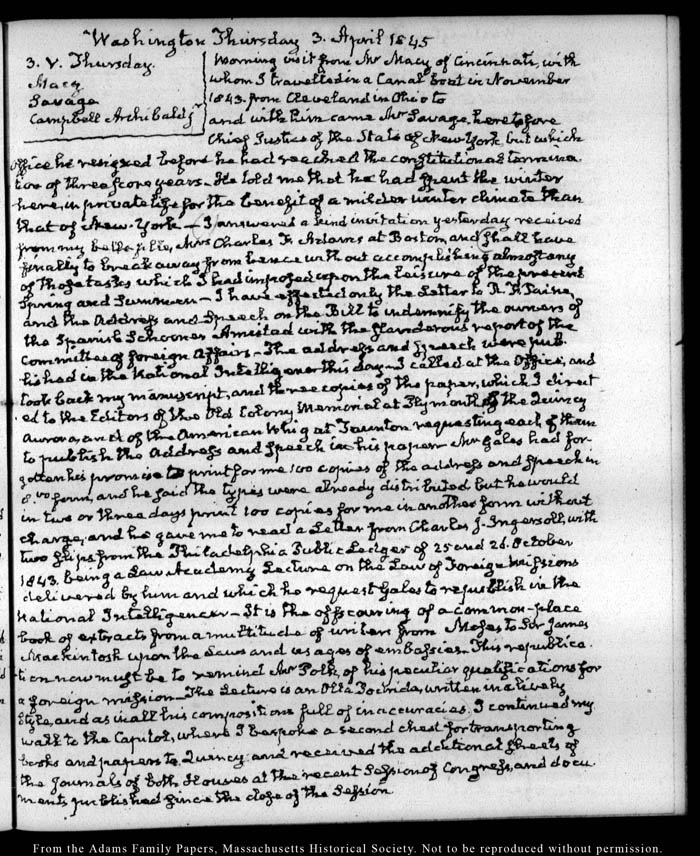 Washington Thursday 3. April 1845
3. V. Thursday.
Macy
Savage
Campbell Archibald
Morning visit from Mr Macy of Cincinnati, with
whom I travelled in a Canal boat in November
1843. from Cleveland in Ohio to
and with him came Mr Savage, heretofore
Chief Justice of the State of New York, but which
Office he resigned before he had reached the constitutional termina-
tion of threescore years. He told me that he had spent the winter
here, in private life for the benefit of a milder winter climate than
that of New-York. I answered a kind invitation yesterday received
from my belle fille, Mrs Charles F. Adams at Boston, and shall have
finally to break away from hence without accomplishing almost any
of those tasks which I had imposed upon the leisure of the present
Spring and Summer. I have effected only the Letter to R. R. Paine,
and the Address and Speech on the Bill to indemnify the owners of
the Spanish Schooner Amistad with the slanderous report of the
Committee of foreign Affairs. The address and Speech were pub-
lished in the National Intelligencer this day. I called at the Office, and
took back my manuscript, and three copies of the paper, which I direct
ed to the Editors of the Old Colony Memorial at Plymouth, of the Quincy
Aurora, and of the American Whig at Taunton requesting each of them
to publish the Address and Speech in his paper. Mr Gales had for-
gotten his promise to print for me 100 copies of the address and Speech in
8.vo form, and he said the types were already distributed but he would
in two or three days print 100 copies for me in another form without
charge, and he gave me to read a Letter from Charles J. Ingersoll, with
two slips from the Philadelphia Public Ledger of 25 and 26. October
1843. being a Law Academy Lecture on the Law of Foreign Missions
delivered by him and which he request Gales to republish in the
National Intelligencer. It is the offscouring of a common-place
book of extracts from a multitude of writers from Moses to Sir James
Mackintosh upon the Laws and usages of embassies. This republica-
tion now must be to remind Mr Polk, of his peculiar qualifications for
a foreign mission. The Lecture is an Olla Podrida, written in a lively
Style, and as in all his compositions full of inaccuracies. I continued my
walk to the Capitol, where I bespoke a second chest for transporting
books and papers to Quincy: and received the additional sheets of
the Journals of both Houses at the recent Session of Congress, and docu
ments published since the close of the Session
From the Adams Family Papers, Massachusetts Historical Society. Not to be reproduced without permission.